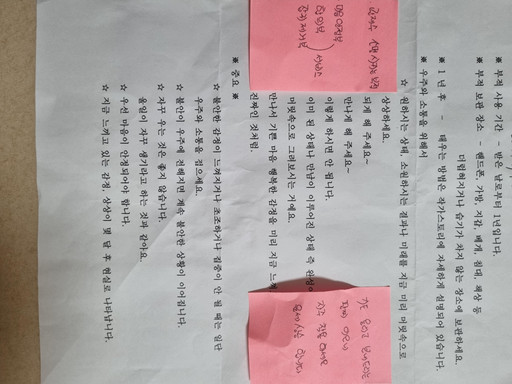 ※ 부적 사용 기간 - 받은 날로부터 1년입니다.
※ 부적 보관 장소 - 핸드폰, 가방, 지갑, 베개, 침대, 책상 등
더럽혀지거나 습기가 차지 않는 장소에 보관하세요.
※ 1년 후 - 태우는 방법은 작가스토리에 자세하게 설명되어 있습니다.
※ 우주와 소통을 위해서
☆ 원하시는 상태, 소원하시는 결과나 미래를 지금 미리 머릿속으로
상상하세요.
되게 해 주세요~
만나게 해 주세요~
이렇게 하시면 안 됩니다.
이미 된 상태나 만남이 이루어진 상태 즉 완성
머릿속으로 그려보시는 거예요.
만나서 기쁜 마음 행복한 감정을 미리 지금 느껴
진짜인 것처럼.
※ 중요 ※
☆ 불안한 감정이 느껴지거나 초조하거나 집중이 안 될 때는 일단
우주와 소통을 접으세요.
☆ 불안이 우주에 전해지면 계속 불안한 상황이 이어집니다.
☆ 자꾸 우는 것은 좋지 않습니다.
울일이 자꾸 생기라고 하는 것과 같아요.
☆ 우선 마음이 안정되어야 합니다.
☆ 지금 느끼고 있는 감정, 상상이 몇 달 후 현실로 나타납니다.
마음안정부
합의부
서비스